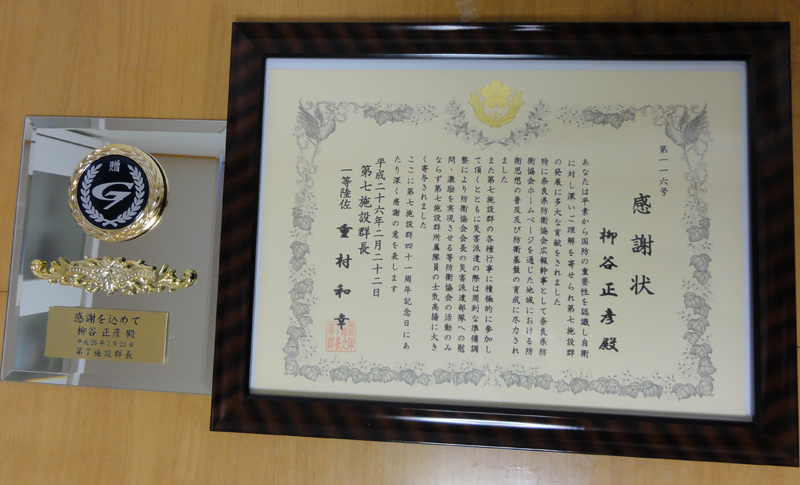 第一一六号
感謝状
柳谷正彦殿
あなたは平素から国防の重要性を認識し自衛
に対し深いご理解を寄せられ第七施設群
の発展に多大な貢献をされました
特に奈良県防衛協会広報幹事として奈良県防
衛協会ホームページを通じた地域における防
衛思想の普及及び防衛基盤の育成に尽力され
ました
また第七施設群の各種行事に積極的に参加し
て頂くとともに災害派遣の際は周到な準備調
整により防衛協会会長の災害派遣部隊への慰
問・激励を実現させる等防衛協会の活動のみ
ならず第七施設群所属隊員の士気高揚に大き
く寄与されました
ここに第七施設群四十一周年記念日にあ
たり深く感謝の意を表します
平成二十六年二月二十二日
第七施設群長
一等陸佐 重村和幸
贈
G
感謝を込めて
柳谷 正彦 殿
平成26年2月22日
第7施設群長